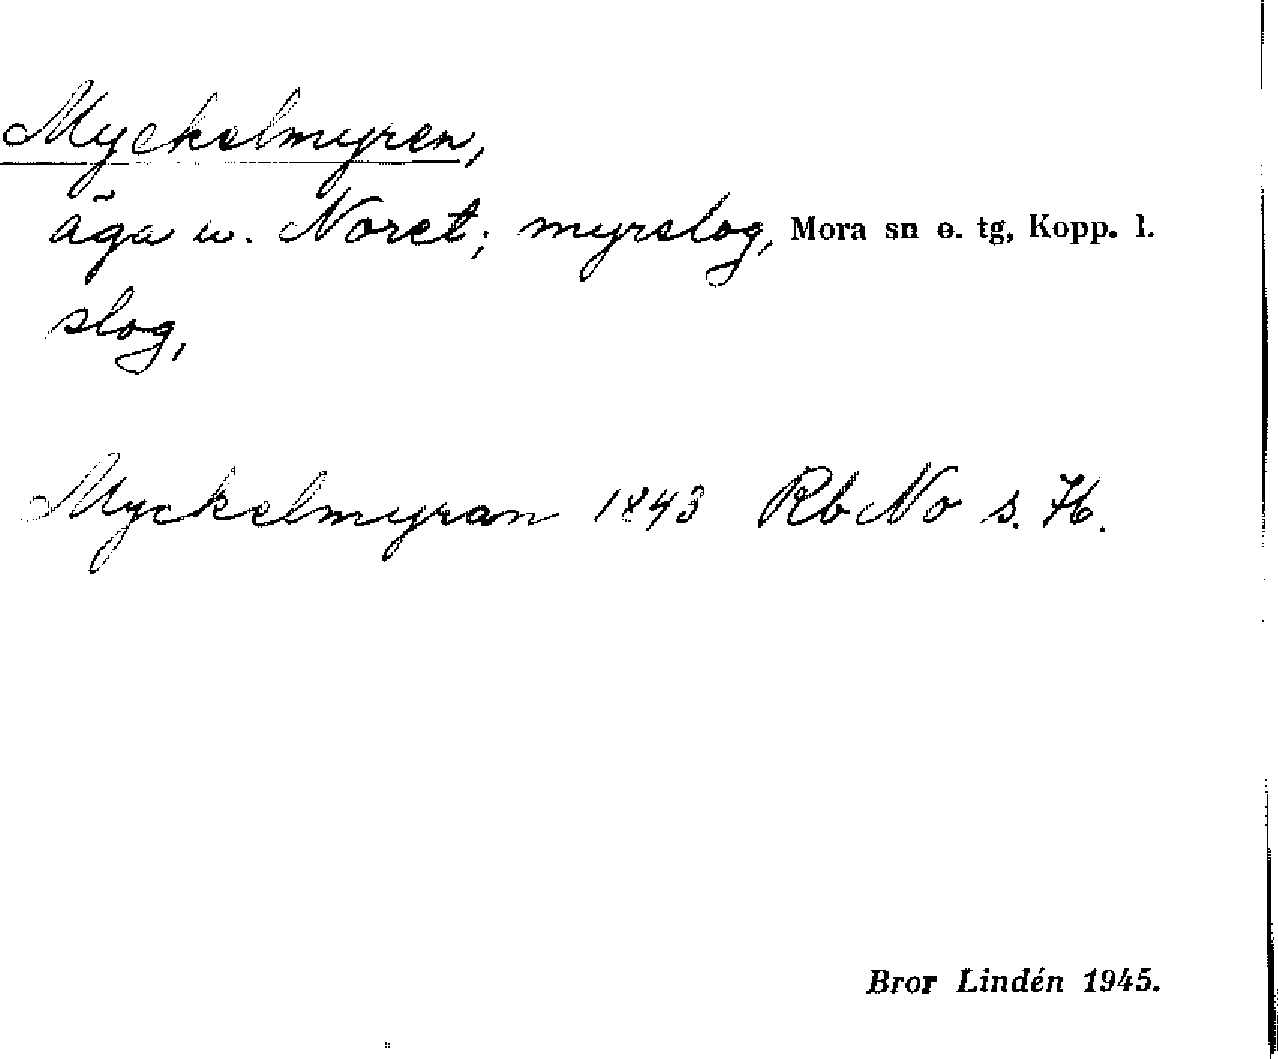 Myckelmyren,
äga u. Noret; myrslog, Mora sn o. tg, Kopp. l.
slog,
Myckelmyran 1843 Rb No s. 76.
Bror Lindén 1945.